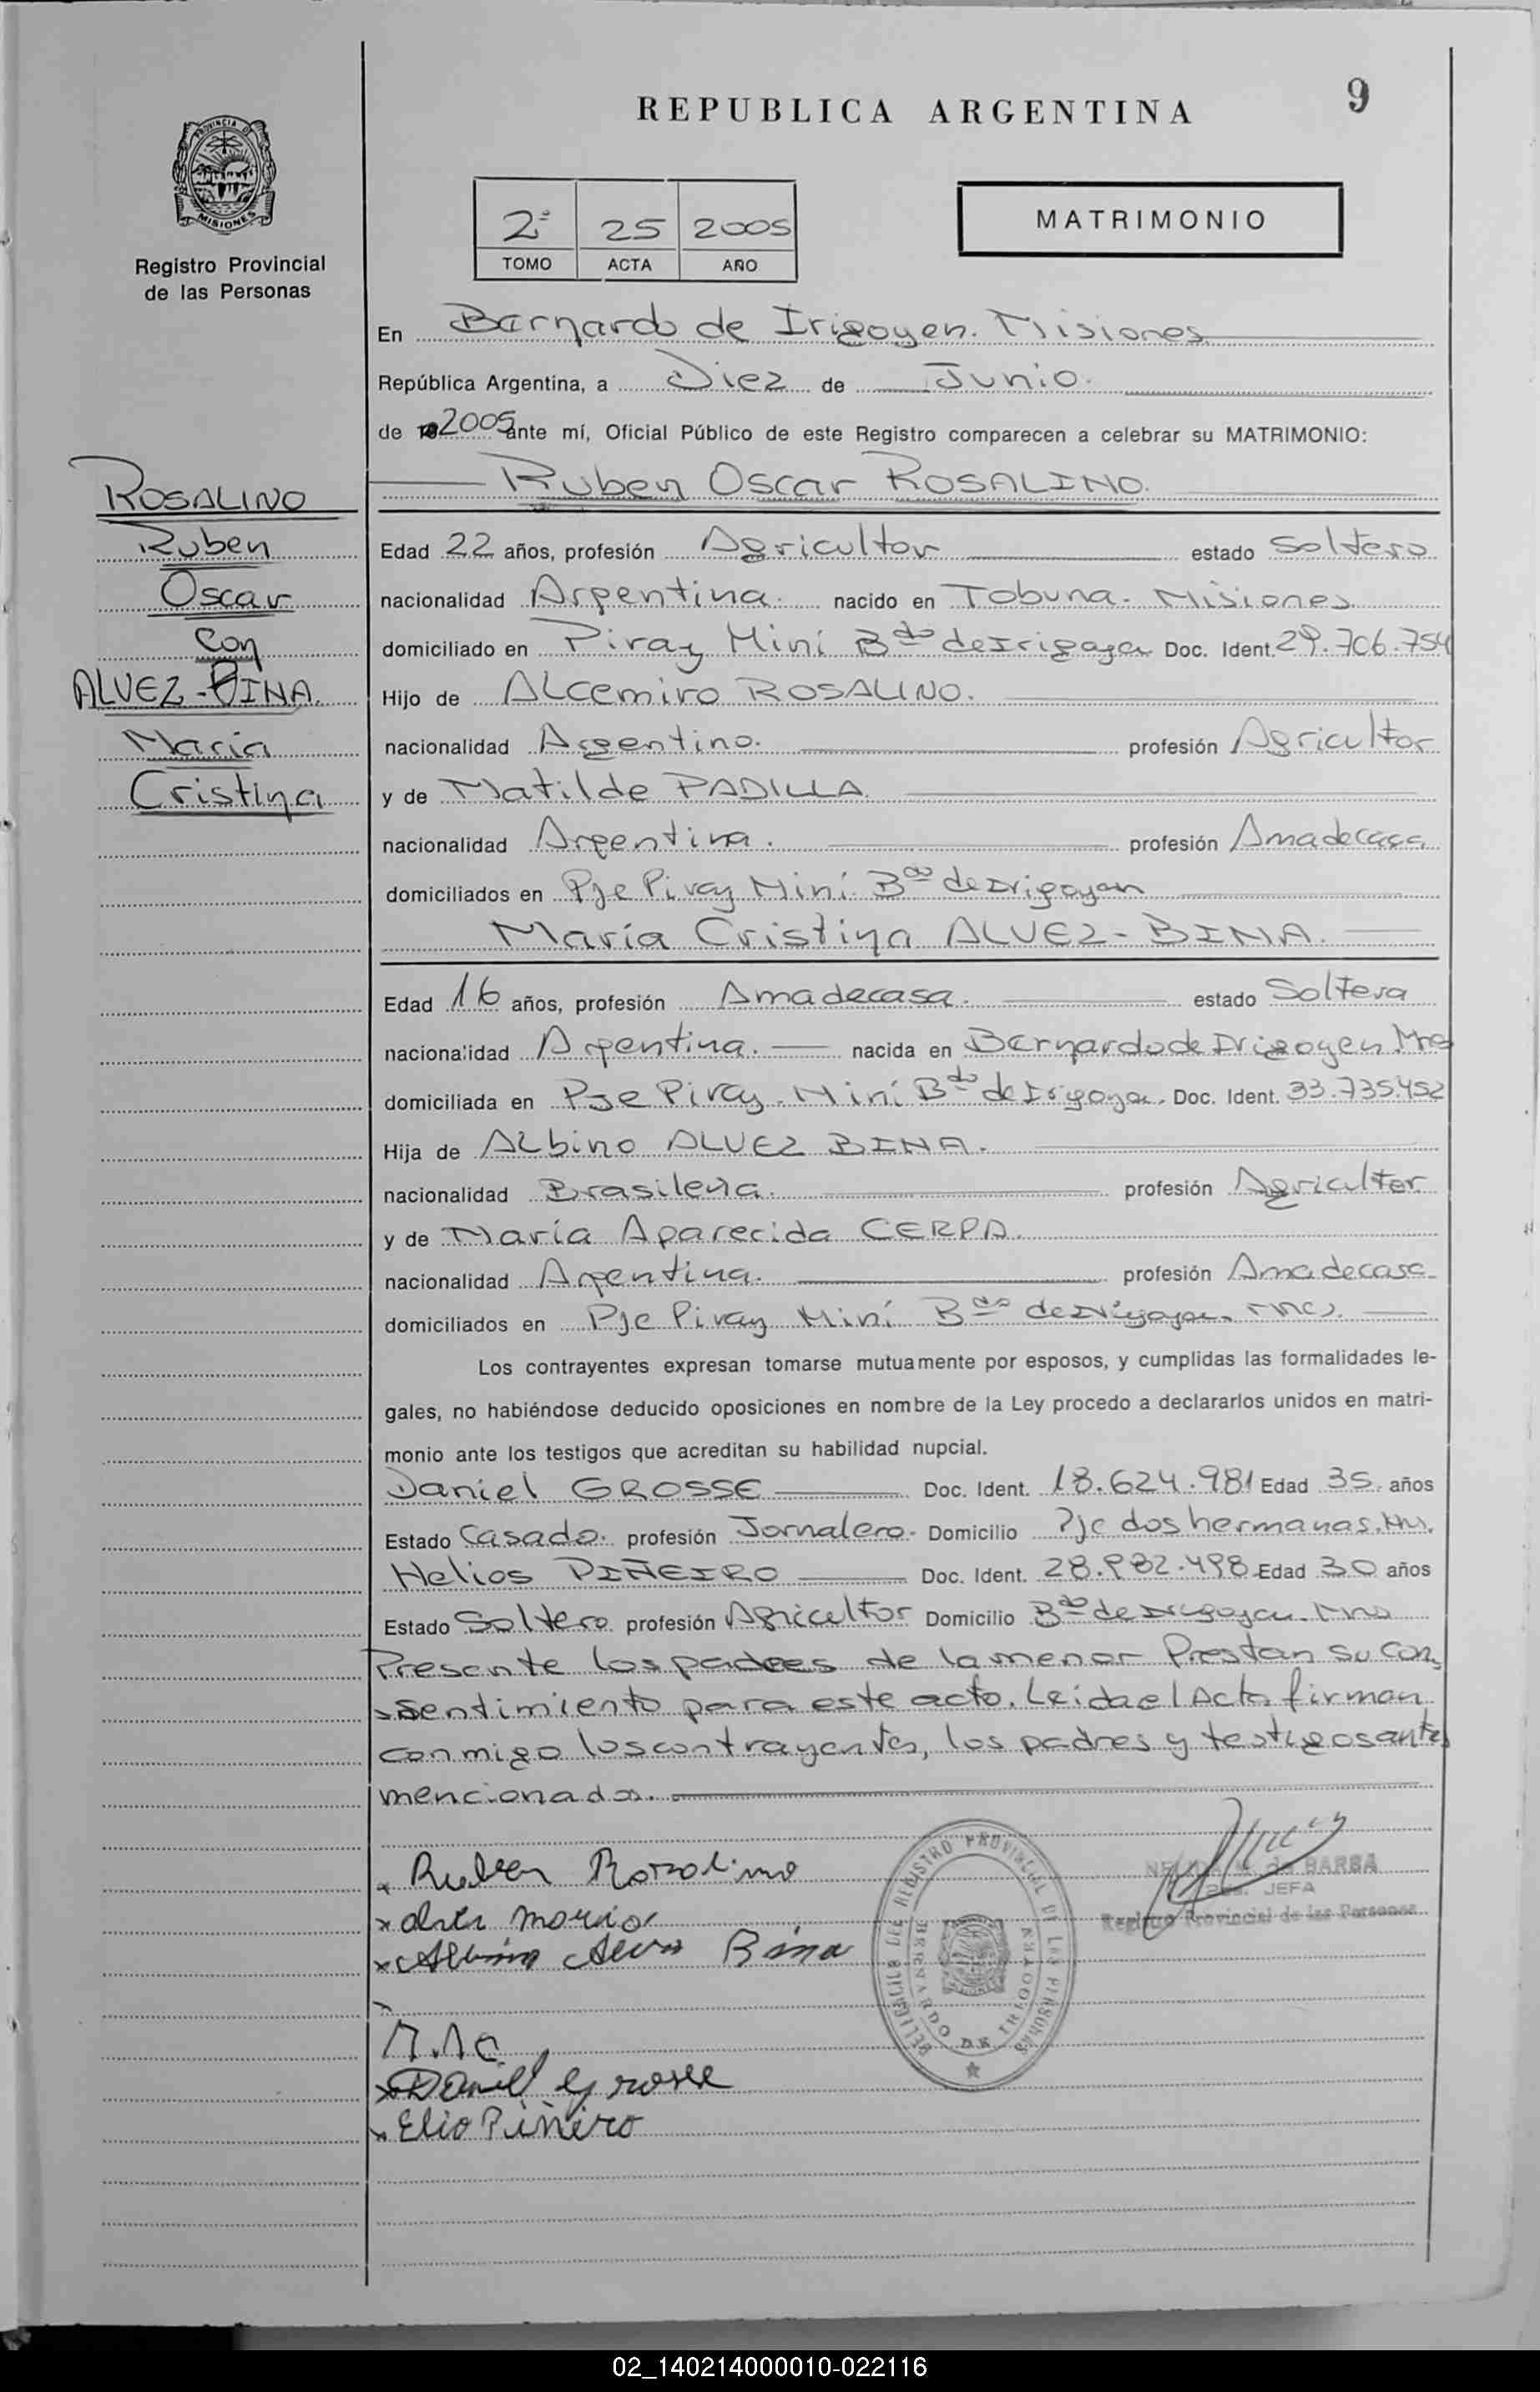 9
REPUBLICA ARGENTINA
PROVINCIA D
MISIONES
Registro Provincial
de las Personas
2º 25 2005
TOMO ACTA AÑO
MATRIMONIO
En Bernardo de Irigoyen. Misiones
República Argentina, a Diez de Junio.
de 2005 ante mí, Oficial Público de este Registro comparecen a celebrar su MATRIMONIO:
ROSALINO
Ruben
Oscar
con
ALVEZ-BINA.
Maria
Cristina
Ruben Oscar ROSALINO.
Edad 22 años, profesión Agricultor estado Soltero
nacionalidad Argentina. nacido en Tobuna. Misiones
domiciliado en Piray Miní Bdo de Irigoyen Doc. Ident. 29.706.754
Hijo de ALcemiro ROSALINO.
nacionalidad Argentino. profesión Agricultor
y de Matilde PADILLA
nacionalidad Argentina. profesión Amadecasa
domiciliados en Pje Piray Miní Bdo de Irigoyen
María Cristina ALVEZ-BINA.
Edad 16 años, profesión Amadecasa. estado Soltera
nacionalidad Argentina. nacida en Bernardo de Irigoyen Mnes
domiciliada en Pje Piray Miní Bdo de Irigoyen. Doc. Ident. 33.735.452
Hija de ALbino ALVEZ BINA.
nacionalidad Brasileña. profesión Agricultor
y de María Aparecida CERPA.
nacionalidad Argentina. profesión Amadecasa
domiciliados en Pje Piray Miní Bdo de Irigoyen, Mnes.
Los contrayentes expresan tomarse mutuamente por esposos, y cumplidas las formalidades le-
gales, no habiéndose deducido oposiciones en nombre de la Ley procedo a declararlos unidos en matri-
monio ante los testigos que acreditan su habilidad nupcial.
Daniel GROSSE Doc. Ident. 18.624.981 Edad 35 años
Estado Casado. profesión Jornalero. Domicilio Pje dos hermanas. Mns.
Helios PIÑEIRO Doc. Ident. 28.982.498 Edad 30 años
Estado Soltero profesión Agricultor Domicilio Bdo de Irigoyen. Mns
Presente los padres de la menor Prestan su con-
sentimiento para este acto. Leida el Acta firman
conmigo los contrayentes, los padres y testigos antes
mencionados.
Ruben Rosalino
Albino Alves Bina
M.A.C
Daniel Grosse
Elio Piñeiro
DELEGACION DEL REGISTRO PROVINCIAL DE LAS PERSONAS
BERNARDO DE IRIGOYEN
de BARBA
JEFA
Registro Provincial de las Personas
02_140214000010-022116